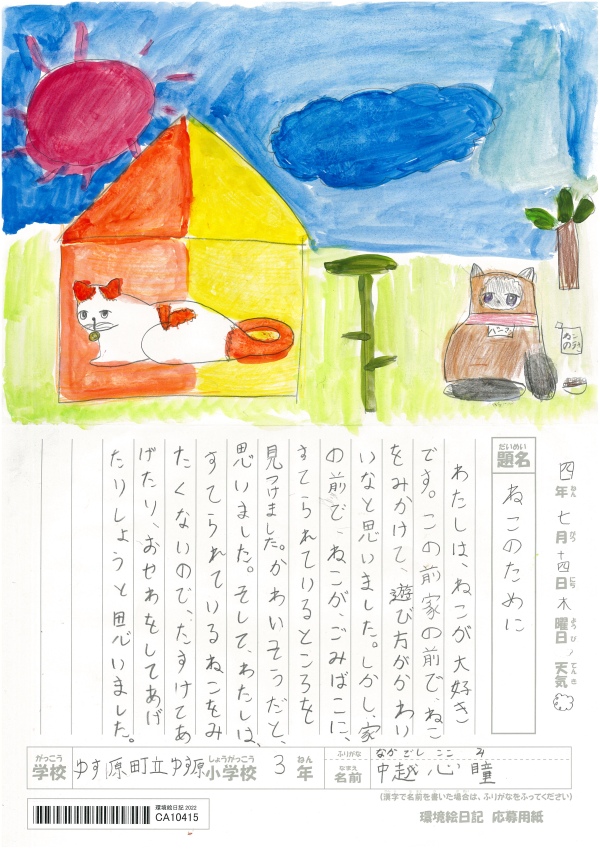 四年七月十四日木曜日/天気
ねん がつ にち ようび てんき
だいめい
題名
ねこのために
わたしは、ねこが大好き
です。この前家の前で、ねこ
をみかけて、遊び方がかわい
いなと思いました。しかし、家
の前で、ねこが、ごみばこに、
すてられているところを
見つけました。かわいそうだと、
思いました。そして、わたしは、
すてられているねこをみ
たくないので、たすけてあ
げたり、おせわをしてあげ
たりしようと思いました。
がっこう しょうがっこう ねん
学校 ゆす原町立ゆす原小学校 3年
ふりがな なかごし ここみ
なまえ
名前 中越 心瞳
(漢字で名前を書いた場合は、ふりがなをふってください)
環境絵日記 2022
CA10415
環境絵日記 応募用紙